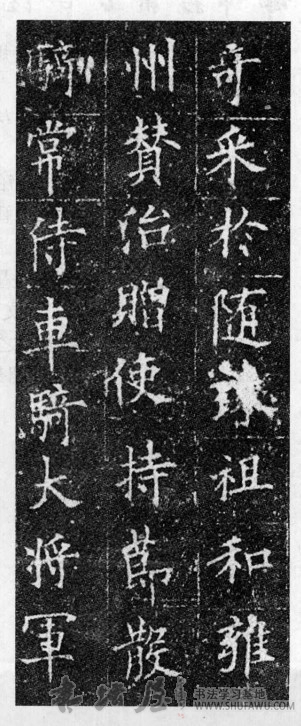 奇采於随珠祖和雍
州賛治贈使持節散
騎常侍車騎大将軍
书法学习基地
WWW.SHUFAWU.COM